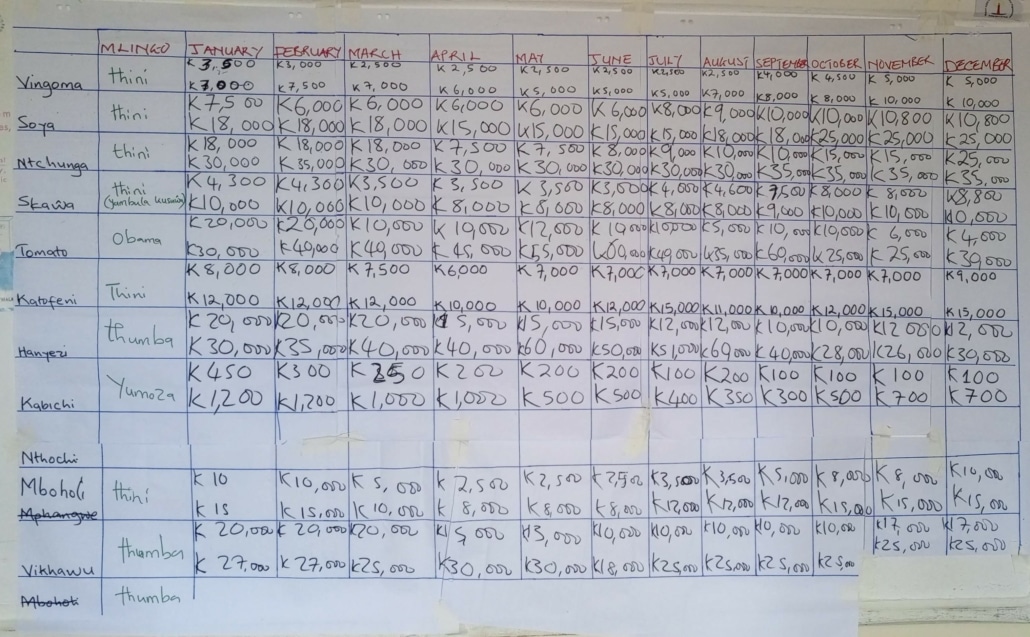 MLINGO JANUARY FEBRUARY MARCH APRIL MAY JUNE JULY AUGUST SEPTEMBER OCTOBER NOVEMBER DECEMBER
K3,500 K3,000 K2,500 K2,500 K2,500 K2,500 K2,500 K2,500 K4,000 K4,500 K5,000 K5,000
Vingoma thini K7,000 K7,500 K7,000 K6,000 K5,000 K5,000 K5,000 K7,000 K8,000 K8,000 K10,000 K10,000
thini K7,500 K6,000 K6,000 K6,000 K6,000 K6,000 K8,000 K9,000 K10,000 K10,000 K10,800 K10,800
Soya K18,000 K18,000 K18,000 K15,000 K15,000 K15,000 K15,000 K18,000 K18,000 K25,000 K25,000 K25,000
thini K18,000 K18,000 K18,000 K7,500 K7,500 K8,000 K9,000 K10,000 K10,000 K15,000 K15,000 K25,000
Ntchunga K30,000 K35,000 K30,000 K30,000 K30,000 K30,000 K30,000 K30,000 K35,000 K35,000 K35,000 K35,000
thini K4,300 K4,300 K3,500 K3,500 K3,500 K3,000 K4,000 K4,600 K7,500 K8,000 K8,000 K8,800
Skawa K10,000 K10,000 K10,000 K8,000 K8,000 K8,000 K8,000 K8,000 K9,000 K10,000 K10,000 K10,000
Obama K20,000 K20,000 K10,000 K12,000 K5,000 K10,000 K10,000 K6,000 K4,000
Tomato K30,000 K40,000 K40,000 K45,000 K55,000 K40,000 K35,000 K60,000 K25,000 K25,000 K30,000
Thini K8,000 K8,000 K7,500 K6,000 K7,000 K7,000 K7,000 K7,000 K7,000 K7,000 K7,000 K9,000
Katofeni K12,000 K12,000 K12,000 K10,000 K10,000 K12,000 K15,000 K11,000 K10,000 K12,000 K15,000 K15,000
thumba K20,000 K20,000 K20,000 K15,000 K15,000 K15,000 K12,000 K12,000 K10,000 K10,000 K12,000 K12,000
Hanyezi K30,000 K35,000 K40,000 K40,000 K60,000 K50,000 K51,000 K69,000 K40,000 K28,000 K26,000 K30,000
Yumoza K450 K300 K200 K200 K200 K100 K200 K100 K100 K100 K100
Kabichi K1,200 K1,200 K1,000 K1,000 K500 K500 K400 K350 K300 K500 K700 K700
Nthochi
Mboholi thini K10 K10,000 K5,000 K2,500 K2,500 K2,500 K3,500 K3,500 K5,000 K8,000 K8,000 K10,000
Mphangwe K15 K15,000 K10,000 K8,000 K8,000 K8,000 K12,000 K12,000 K12,000 K15,000 K15,000 K15,000
thumba K20,000 K20,000 K20,000 K15,000 K13,000 K10,000 K10,000 K10,000 K10,000 K10,000 K17,000 K17,000
Vikhawu K27,000 K27,000 K25,000 K30,000 K30,000 K18,000 K25,000 K25,000 K25,000 K25,000 K25,000 K25,000
Mboholi thumba